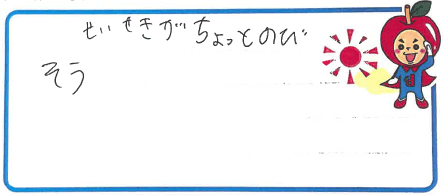 せいせきがちょっとのび
そう